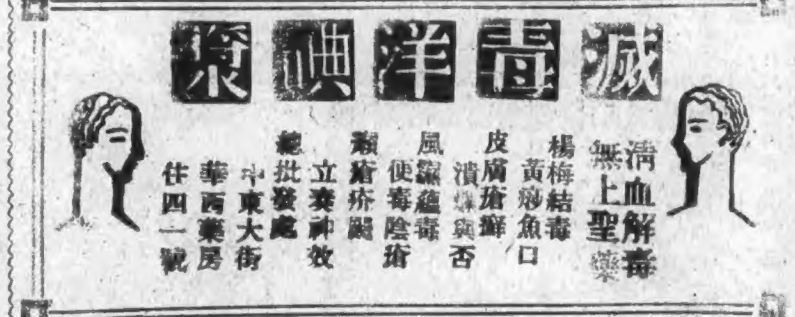 滅毒洋碘漿
清血解毒
無上聖藥
楊梅結毒
黃痧魚口
皮膚瘡癬
潰爛與否
風濕蘊毒
便毒陰瘡
瘡疥
立奏神效
總批發處
中東大街
華西藥房
四一號